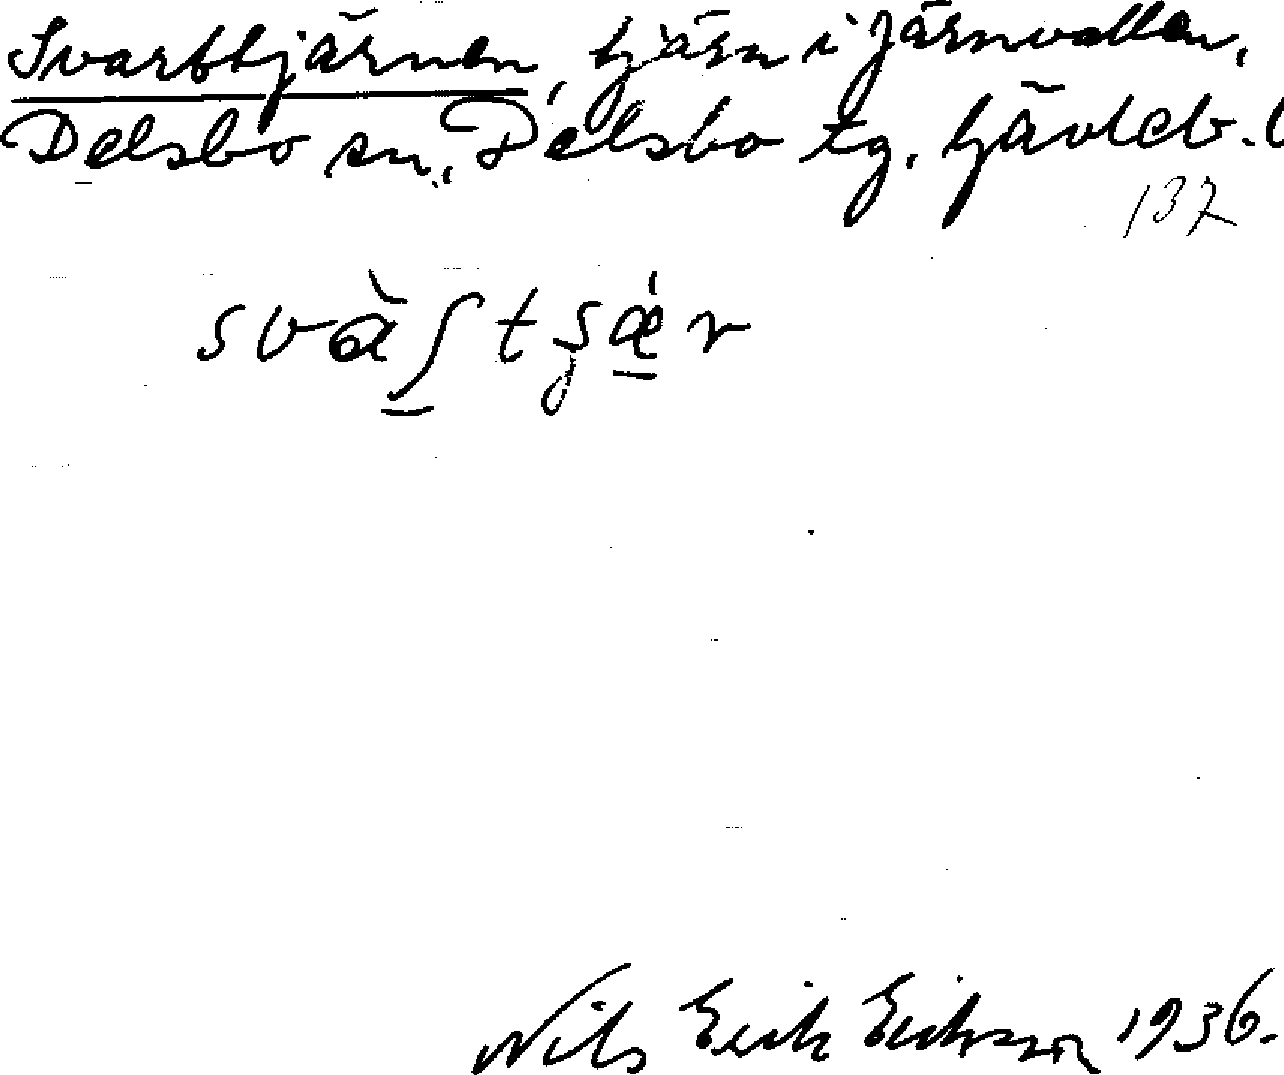 Svarttjärnen, tjärn i Järnvallen,
Delsbo sn, Delsbo tg, Gävleb. l
137
Nils Erik Erikson 1936.